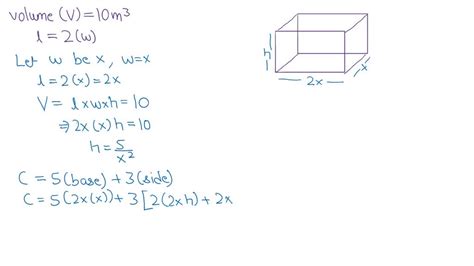 volume (V) = 10m³
l = 2(w)
Let w be x, w=x
l = 2(x) = 2x
V = lxwxh = 10
⇒ 2x(x)h = 10
h = 5/x²
C = 5(base) + 3(side)
C = 5(2x(x)) + 3[2(2xh) + 2x
h
2x
x